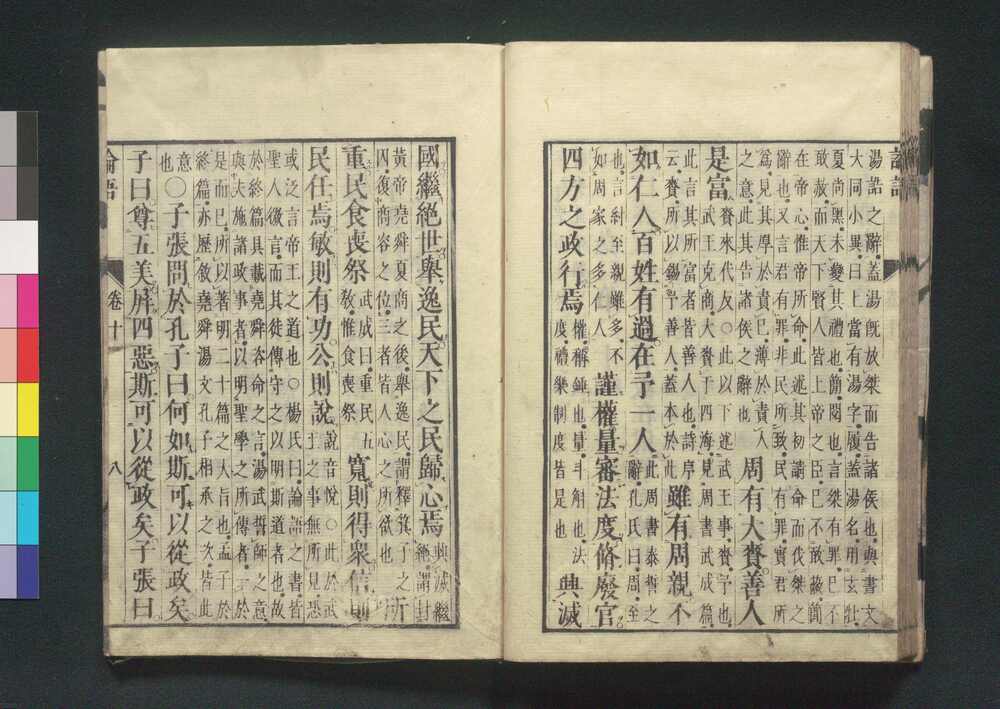 湯誥之辭蓋湯既放桀而告諸侯也與書文
大同小異曰上當有湯字履蓋湯名用玄牡
夏尚黑未變其禮也簡閱也言桀有罪已不
敢赦而天下賢人皆上帝之臣已不敢蔽簡
在帝心惟帝所命此述其初請命而伐桀之
辭也又言君有罪非民所致民有罪實君所
爲見其厚於責已薄於責人
之意此其告諸侯之辭也
周有大賚善人
是富
賚來代反此以下述武王事賚予也
武王克商大賚于四海見周書武成篇
此言其所富者皆善人也詩序
云賚所以錫予善人蓋本於此
雖有周親不
如仁人百姓有過在予一人
此周書泰誓之
辭孔氏曰周至
也言紂至親雖多不
如周家之多仁人
謹權量審法度修廢官
四方之政行焉
權稱錘也量斗斛也法
度禮樂制度皆是也
興滅
國繼絕世舉逸民天下之民歸心焉
興滅繼
絕謂封
黃帝堯舜夏商之後舉逸民謂釋箕子之
囚復商容之位三者皆人心之所欲也
所
重民食喪祭
武成曰重民五
教惟食喪祭
寬則得衆信則
民任焉敏則有功公則說
說音悅○此於武
王之事無所見恐
或泛言帝王之道也○楊氏曰論語之書皆
聖人微言而其徒傳守之以明斯道者也故
於終篇具載堯舜咨命之言湯武誓師之意
與夫施諸政事者以明聖學之所傳者一於
是而已所以著明二十篇之大旨也孟子於
終篇亦歷敘堯舜湯文孔子相承之次皆此
意
也
○子張問於孔子曰何如斯可以從政矣
子曰尊五美屏四惡斯可以從政矣子張曰
論語 卷十 八